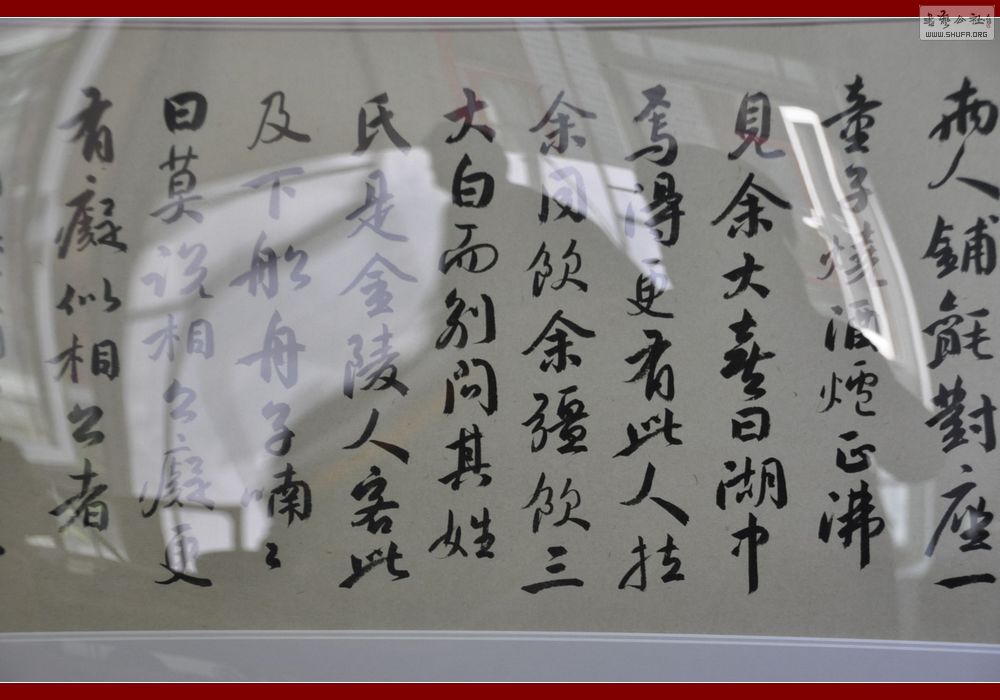 兩人鋪氈對座一
童子燒酒爐正沸
見余大喜曰湖中
焉得更有此人拉
余同飲余彊飲三
大白而别問其姓
氏是金陵人客此
及下船舟子喃〻
曰莫説相公癡更
有癡似相公者
書藝公社
WWW.SHUFA.ORG